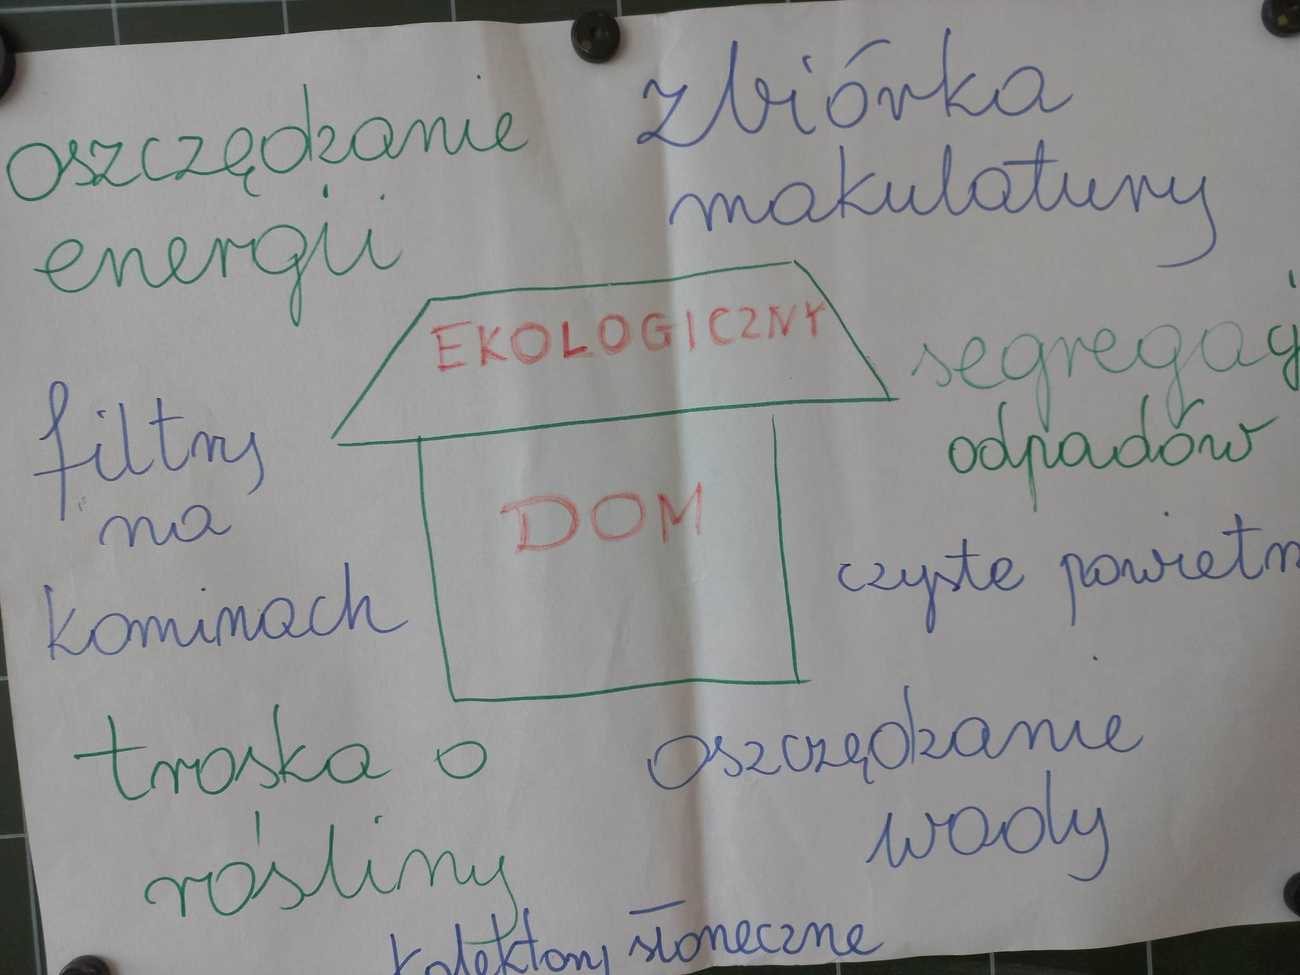 oszczędzanie
energii
zbiórka
makulatury
EKOLOGICZNY
DOM
segregacj
odpadów
filtry
na
kominach
czyste powietrz
troska o
rośliny
oszczędzanie
wody
kolektory słoneczne